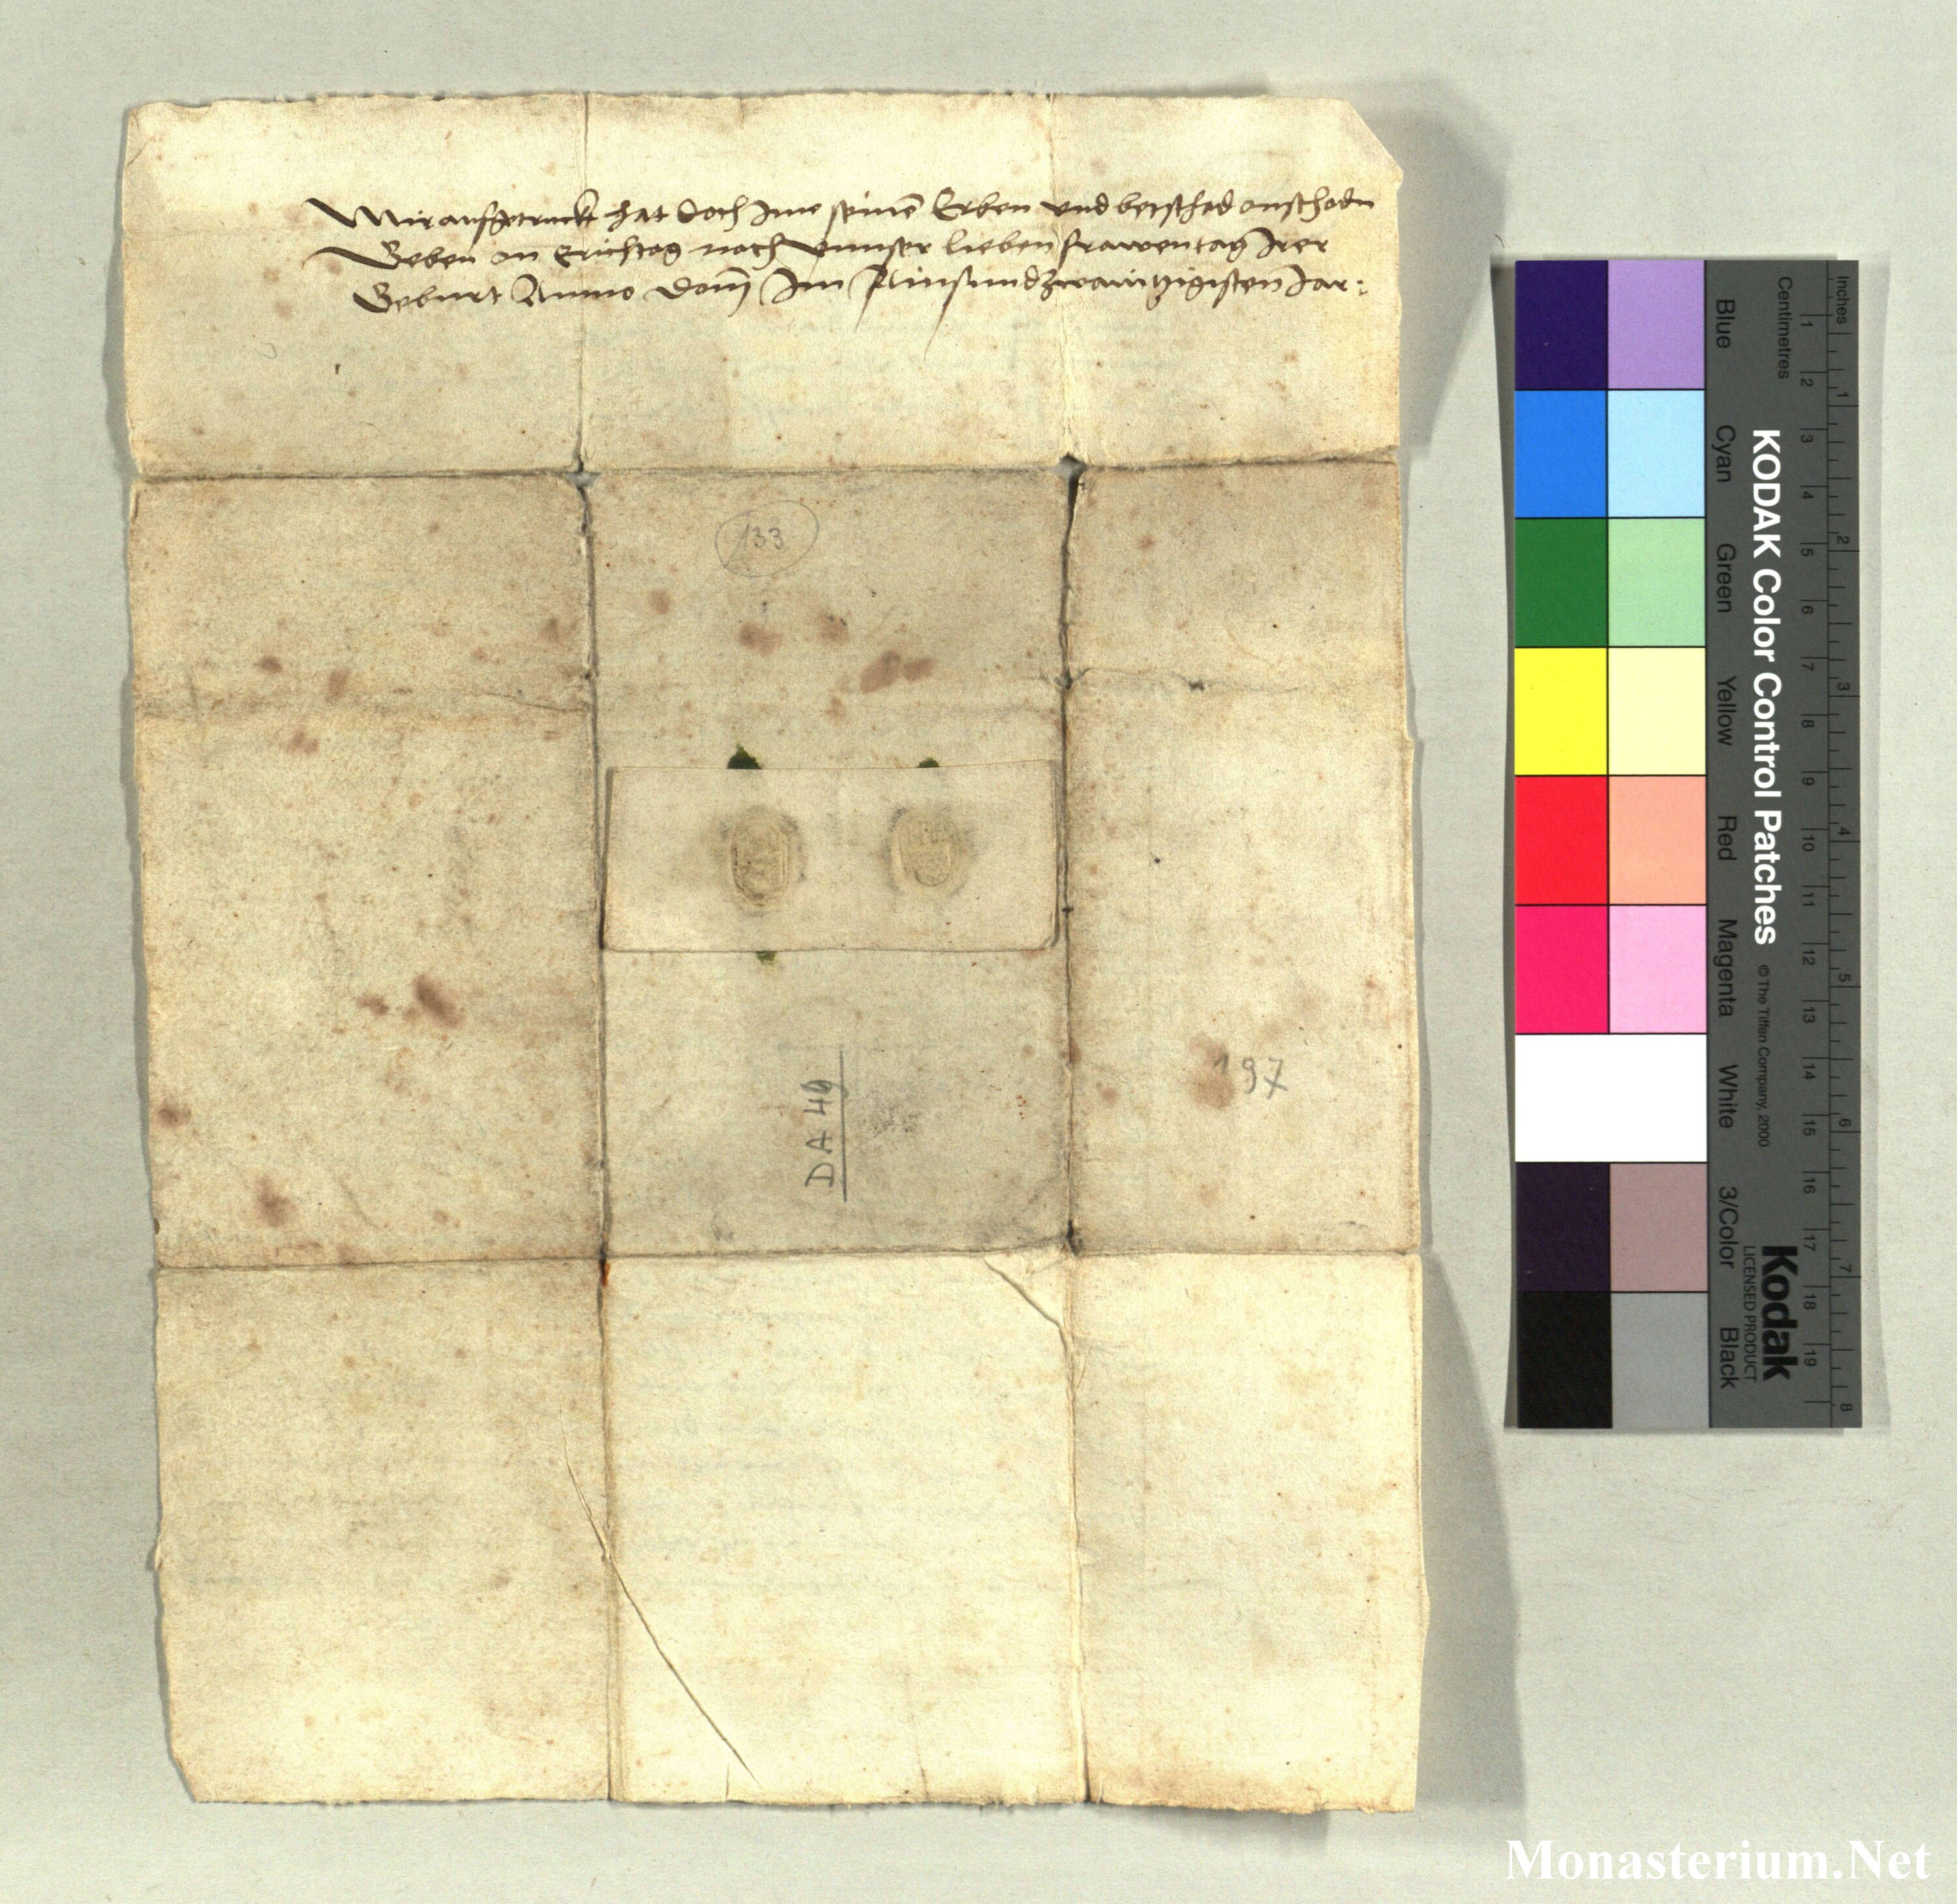 Mir aufgetruckt hat doch Ime seinē Erben und betschad onschadn
Geben an Erichtag nach unnser lieben frawentag Irer
Geburt Anno domj Im Ainsundzwaintzigisten Jar:
133
DA 49
197
Blue
Cyan
Green
Yellow
Red
Magenta
White
3/Color
Black
KODAK Color Control Patches
© The Tiffen Company, 2000
Kodak
LICENSED PRODUCT
Centimetres
1 2 3 4 5 6 7 8 9 10 11 12 13 14 15 16 17 18 19
Inches
1 2 3 4 5 6 7 8
Monasterium.Net